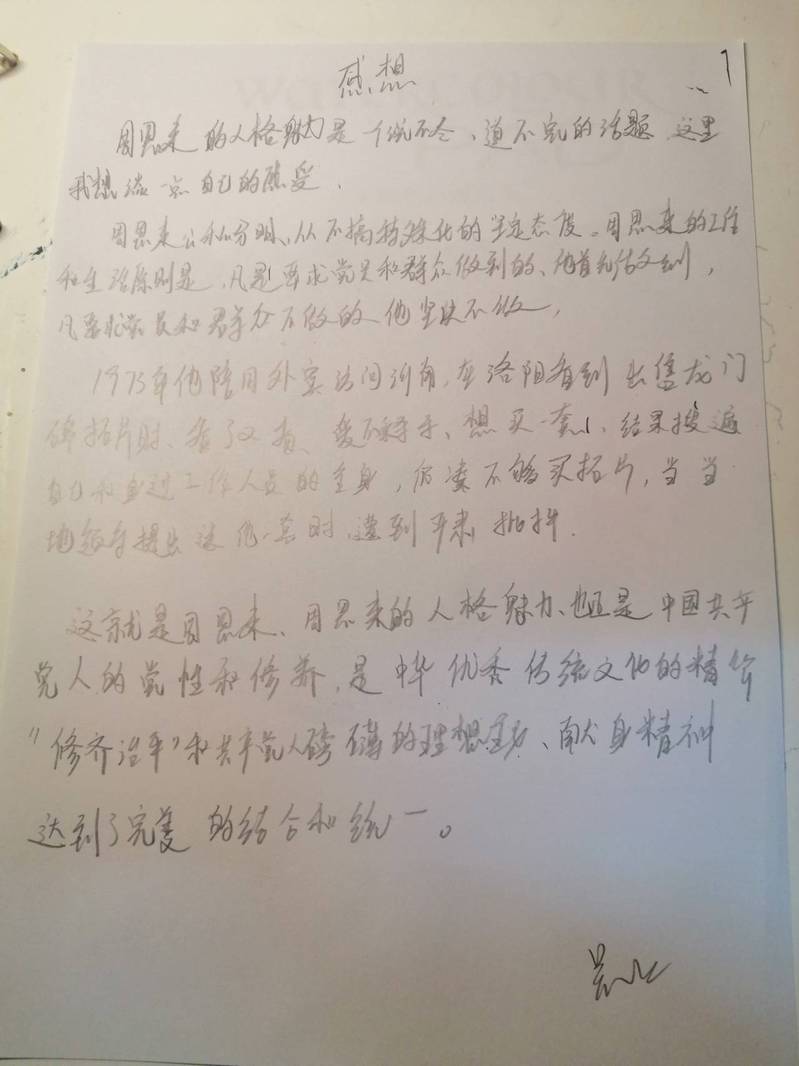 感想
周恩来的人格魅力是一个说不尽、道不完的话题 这里
我想谈一点自己的感受、
周恩来公私分明、从不搞特殊化的坚定态度。周恩来的工作
和生活原则是、凡是要求党员和群众做到的、他首先
凡要求党员和群众不做的他坚决不做,
1973年他陪同外宾访问河南,在洛阳看到出售龙门
碑拓片时、看了又看、爱不释手、想买一套、结果搜遍
自己和身边工作人员的全身,仍凑不够买拓片,当当
地领导提出送他一套时、遭到严肃批评.
这就是周恩来、周恩来的人格魅力、也正是中国共产
党人的党性和修养,是中华优秀传统文化的精华
"修齐治平"和共产党人磅礴的理想、献身精神
达到了完美的结合和统一。